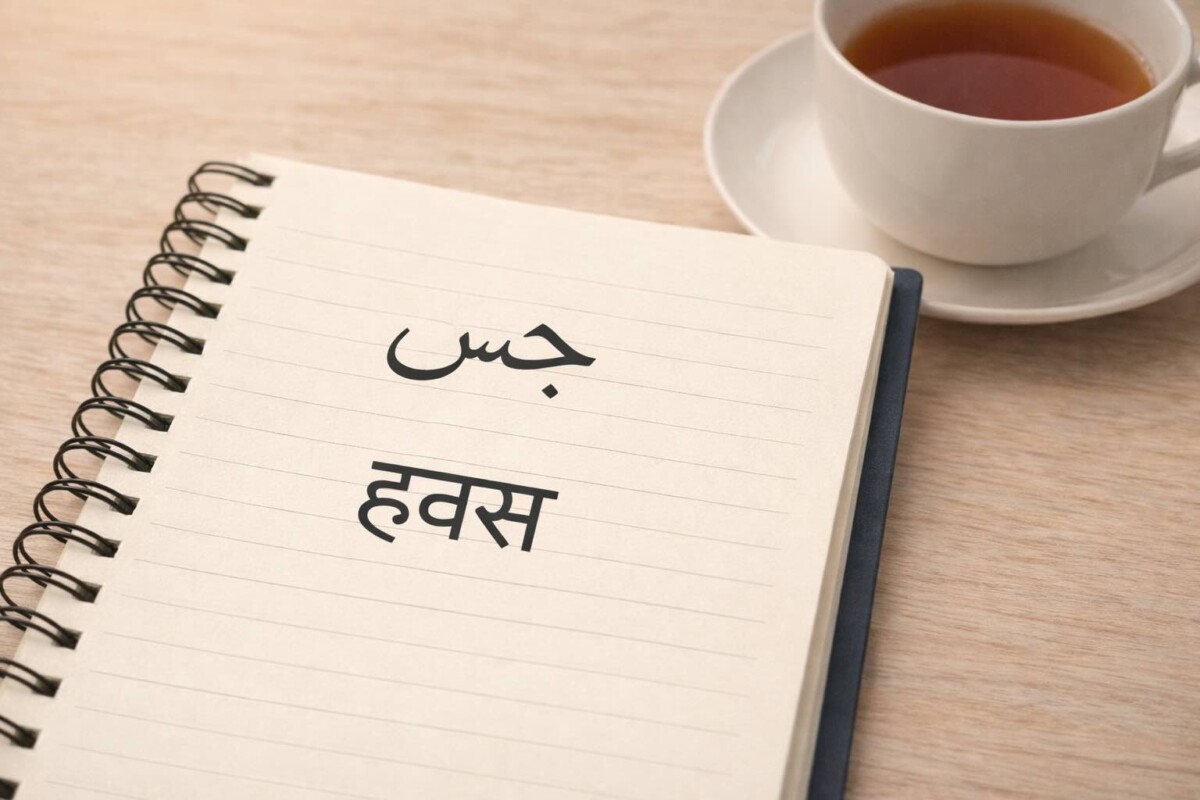 جس
हवस